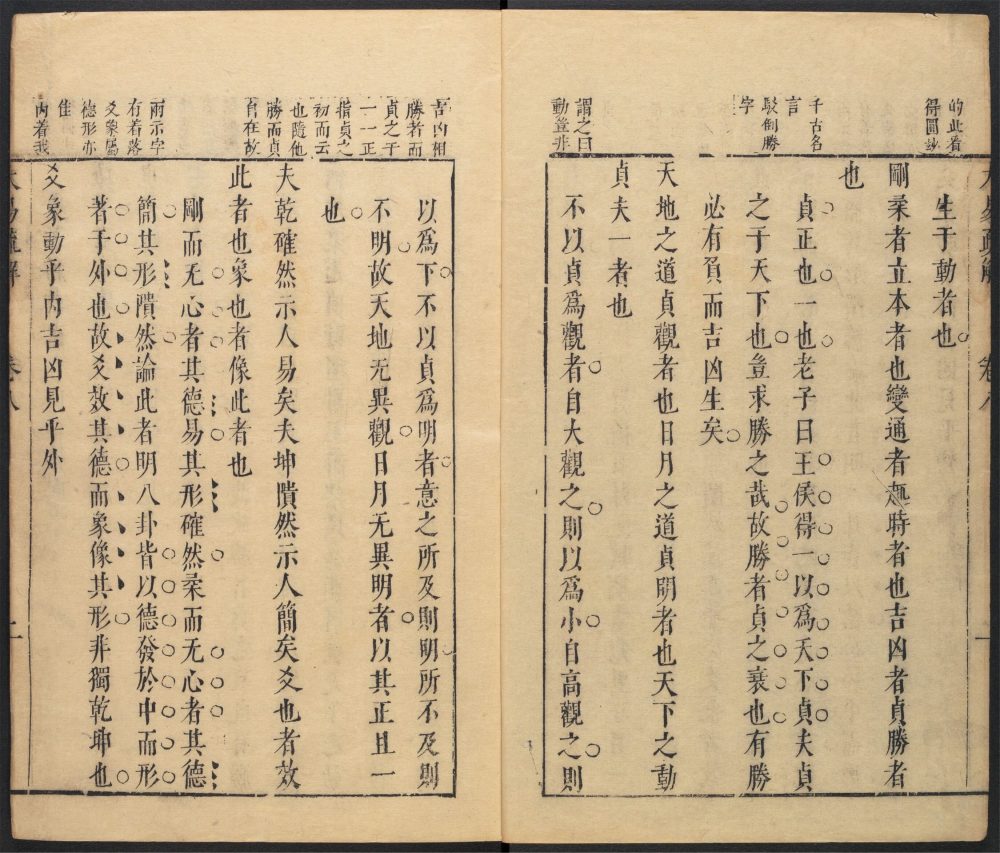 的此看
得圓妙
千古名
言
駁倒勝
字
謂之曰
動豈非
大易疏解　卷八　一
生于動者也
剛柔者立本者也變通者趣時者也吉凶者貞勝者
也
貞正也一也老子曰王侯得一以爲天下貞夫貞
之于天下也豈求勝之哉故勝者貞之衰也有勝
必有負而吉凶生矣
天地之道貞觀者也日月之道貞明者也天下之動
貞夫一者也
不以貞爲觀者自大觀之則以爲小自高觀之則
吉凶相
勝者而
貞之于
一一正
指貞之
初而云
也隨他
勝而貞
自在故
兩示字
有着落
爻象屬
德形亦
佳
內着我
以爲下不以貞爲明者意之所及則明所不及則
不明故天地无異觀日月无異明者以其正且一
也
夫乾確然示人易矣夫坤隤然示人簡矣爻也者效
此者也象也者像此者也
剛而无心者其德易其形確然柔而无心者其德
簡其形隤然論此者明八卦皆以德發於中而形
著于外也故爻效其德而象像其形非獨乾坤也
爻象動乎內吉凶見乎外
大易疏解　卷八　二